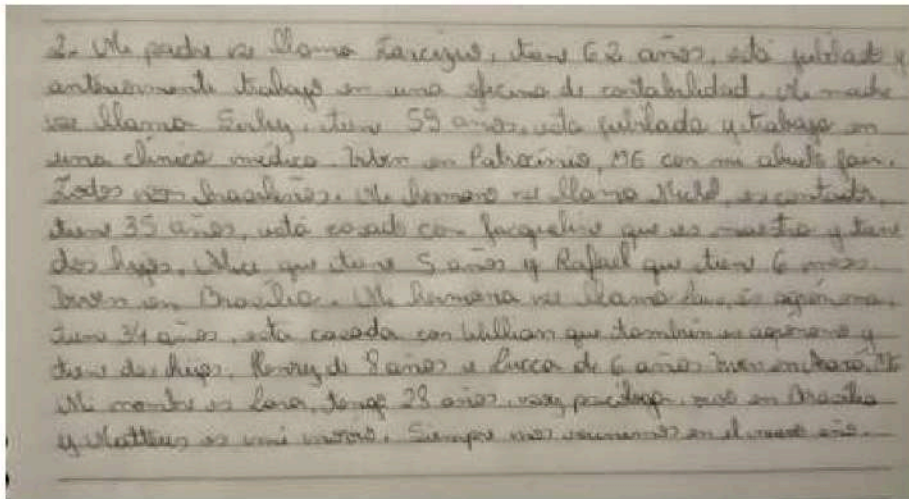 2- Me padre se llama Tarcizus, tiene 62 años, está jubilado y
anteriormente trabajo en una oficina de contabilidad. Me madre
se llama tiene 59 años, está jubilada y trabaja en
una clínica médica. Viven en Patrocínio, MG con mi abuelo
Todos son brasileños. Me hermano se llama es contador,
tiene 35 años, está casado con Jacqueline que es maestra y tiene
dos hijos, Alice que tiene 5 años y Rafael que tiene 6 meses.
Viven en Brasília. Me hermana se llama es agrónoma,
tiene 34 años, está casada con Willian que también es agrónomo y
tiene dos hijos, Henry de 8 años e Lucca de 6 años. Viven en
Me nombre es Lara, tengo 28 años, soy psicóloga, vivo en Brasília
y Mattheus es mi novio. Siempre nos reunimos en el nuevo año.